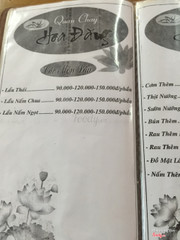 Quán Chay
Hoa Đăng
- Lẩu Thái 90.000-120.000-150.000đ/phần
- Lẩu Nấm Chua 90.000-120.000-150.000đ/phần
- Lẩu Nấm Ngọt 90.000-120.000-150.000đ/phần
- Cơm Thêm
- Thịt Nướng
- Sườn Nướng
- Bún Thêm
- Rau Thêm
- Rau Thêm
- Đồ Mặt Lẩ
- Nấm Thêm